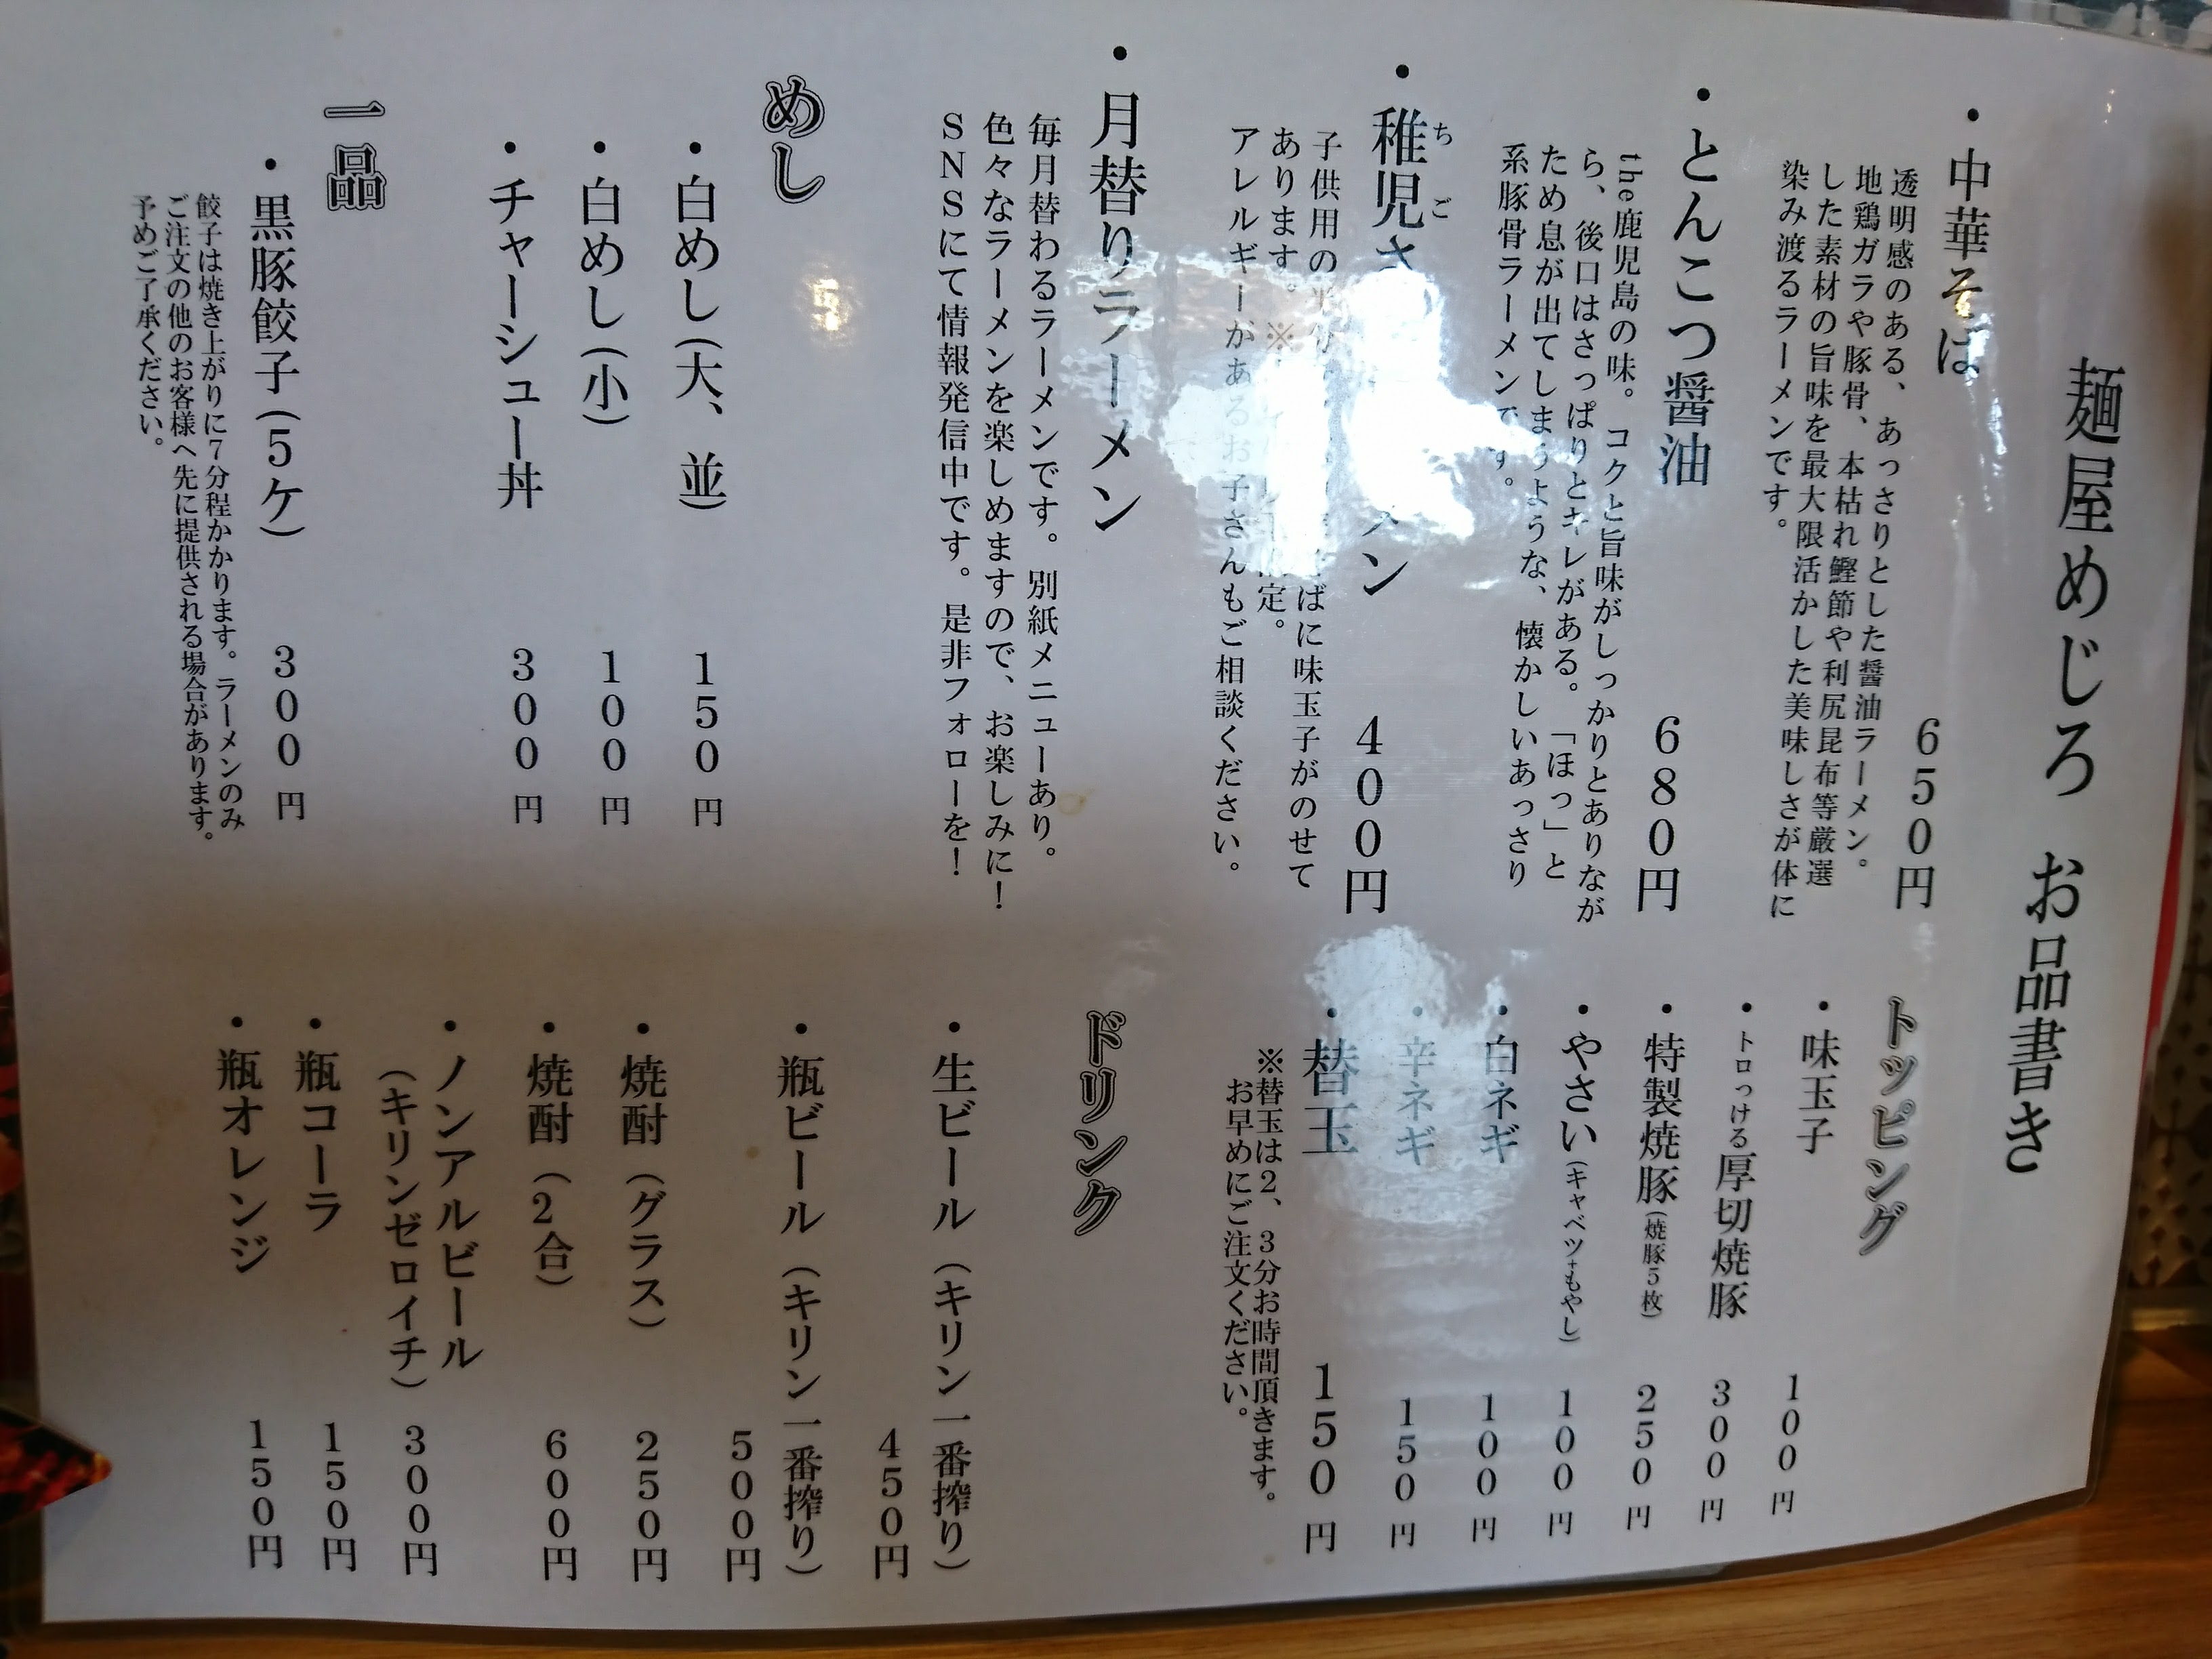 麺屋めじろ お品書き
・中華そば 650円
透明感のある、あっさりとした醤油ラーメン。
地鶏ガラや豚骨、本枯れ鰹節や利尻昆布等厳選
した素材の旨味を最大限活かした美味しさが体に
染み渡るラーメンです。
・とんこつ醤油 680円
the鹿児島の味。コクと旨味がしっかりとありなが
ら、後口はさっぱりとキレがある。「ほっ」と
ため息が出てしまうような、懐かしいあっさり
系豚骨ラーメンです。
ちご
・稚児さ メン 400円
子供用の ばに味玉子がのせて
あります。※ 定。
アレルギーがあるお子さんもご相談ください。
・月替りラーメン
毎月替わるラーメンです。別紙メニューあり。
色々なラーメンを楽しめますので、お楽しみに！
SNSにて情報発信中です。是非フォローを！
めし
・白めし(大、並) 150円
・白めし(小) 100円
・チャーシュー丼 300円
一品
・黒豚餃子(5ケ) 300円
餃子は焼き上がりに7分程かかります。ラーメンのみ
ご注文の他のお客様へ先に提供される場合があります。
予めご了承ください。
トッピング
・味玉子 100円
・トロっける厚切焼豚 300円
・特製焼豚(焼豚5枚) 250円
・やさい(キャベツ+もやし) 100円
・白ネギ 100円
・辛ネギ 150円
・替玉 150円
※替玉は2、3分お時間頂きます。
お早めにご注文ください。
ドリンク
・生ビール(キリン一番搾り)
450円
・瓶ビール(キリン一番搾り)
500円
・焼酎(グラス) 250円
・焼酎(2合) 600円
・ノンアルビール
(キリンゼロイチ) 300円
・瓶コーラ 150円
・瓶オレンジ 150円